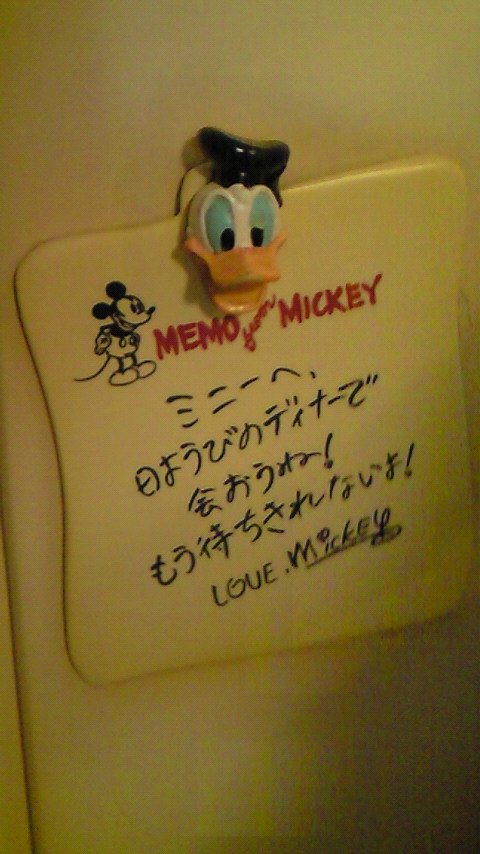 MEMO from MICKEY
ミニーへ、
日ようびのディナーで
会おうね!
もう待ちきれないよ!
LOVE. MICKEY